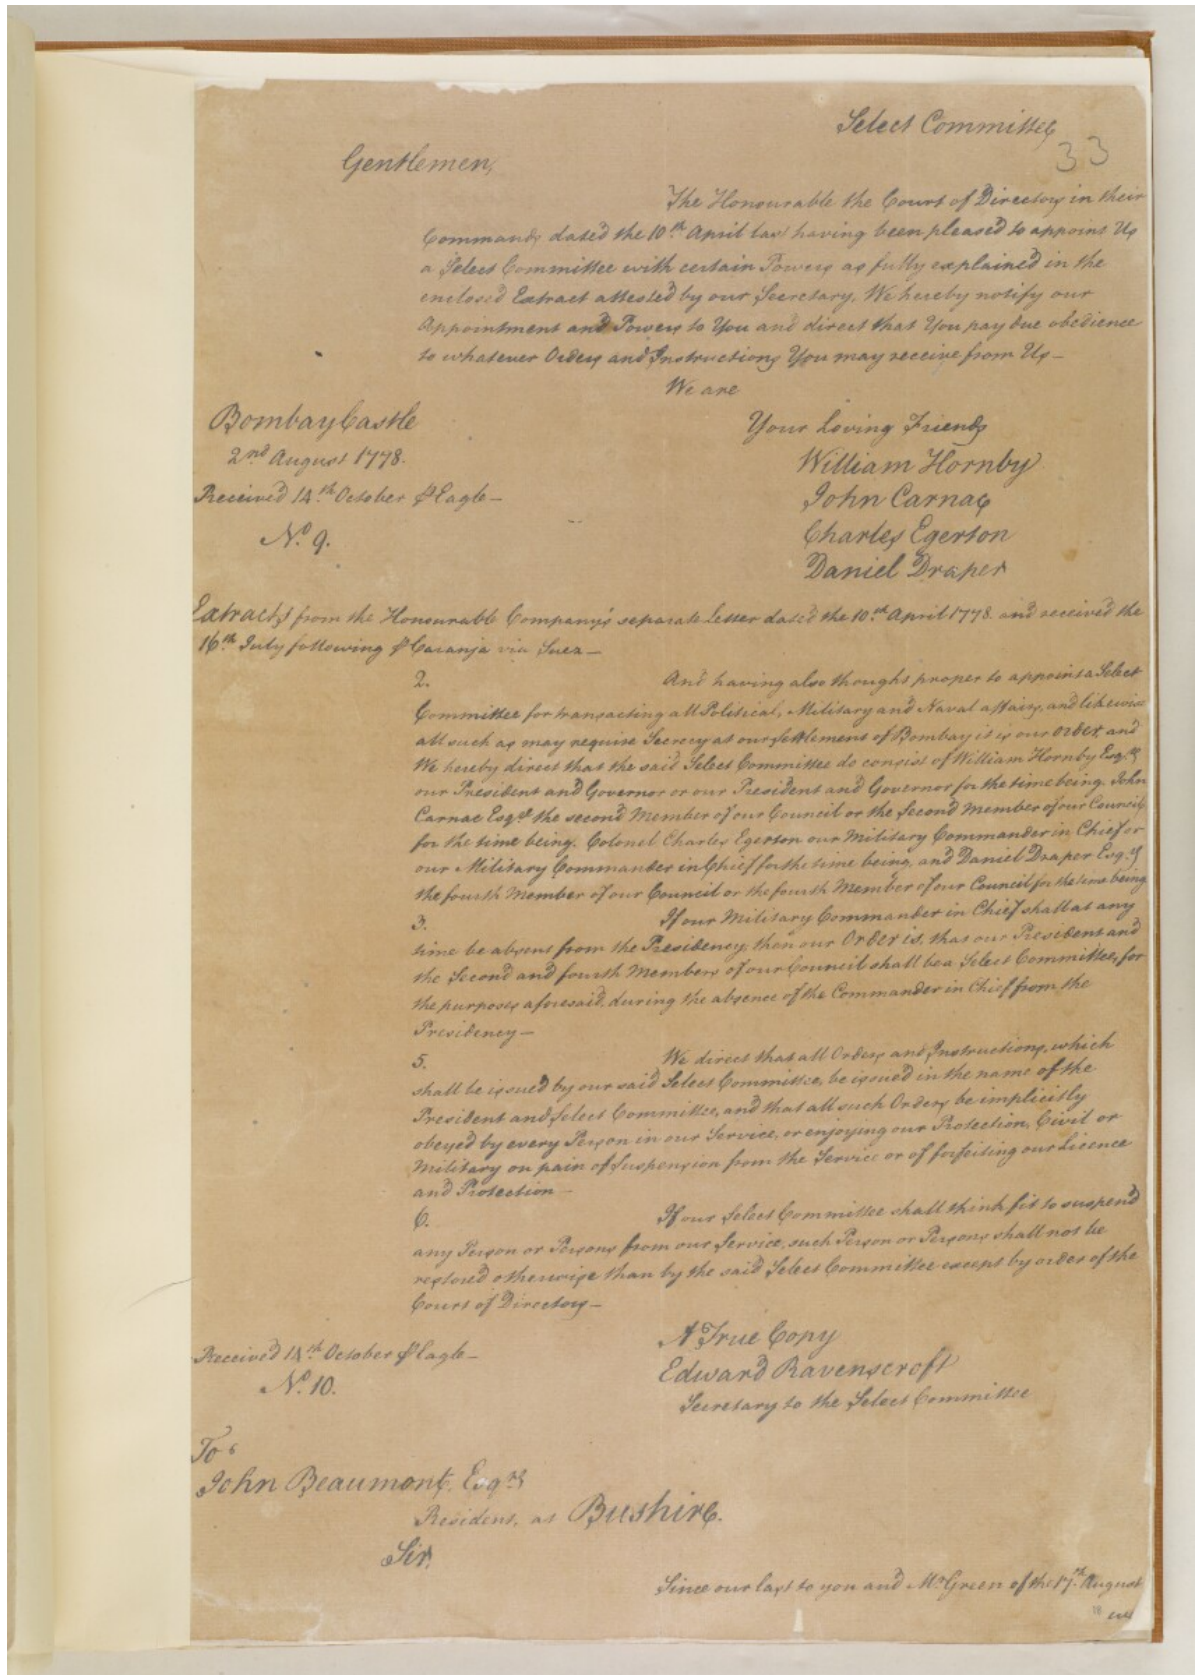 Select Committee
33
Gentlemen,
The Honourable the Court of Directors in their
Commands dated the 10th April last having been pleased to appoint Us
a Select Committee with certain Powers as fully explained in the
enclosed Extract attested by our Secretary, We hereby notify our
Appointment and Powers to You and direct that You pay due obedience
to whatever Orders and Instructions You may receive from Us —
We are
Bombay Castle
Your Loving Friends
2nd August 1778.
William Hornby
Received 14th October ⅌ Eagle —
John Carnac
No. 9.
Charles Egerton
Daniel Draper
Extracts from the Honourable Company's separate Letter dated the 10th April 1778 and received the
16th July following ⅌ Caranja via Suez —
2. And having also thought proper to appoint a Select
Committee for transacting all Political, Military and Naval affairs, and likewise
all such as may require Secrecy at our Settlement of Bombay it is our order, and
We hereby direct that the said Select Committee do consist of William Hornby Esqr.
our President and Governor or our President and Governor for the time being. John
Carnac Esqr. the second Member of our Council or the Second Member of our Council
for the time being. Colonel Charles Egerton our Military Commander in Chief or
our Military Commander in Chief for the time being, and Daniel Draper Esqr.
the fourth Member of our Council or the fourth Member of our Council for the time being
3. If our Military Commander in Chief shall at any
time be absent from the Presidency, than our Order is, that our President and
the Second and fourth Members of our Council shall be a Select Committee, for
the purposes aforesaid, during the absence of the Commander in Chief from the
Presidency —
5. We direct that all Orders and Instructions, which
shall be issued by our said Select Committee, be issued in the name of the
President and Select Committee, and that all such Orders be implicitly
obeyed by every Person in our Service, or enjoying our Protection, Civil or
Military on pain of Suspension from the Service or of forfeiting our Licence
and Protection —
6. If our Select Committee shall think fit to suspend
any Person or Persons from our Service, such Person or Persons shall not be
restored otherwise than by the said Select Committee except by order of the
Court of Directors —
A True Copy
Received 14th October ⅌ Eagle —
Edward Ravenscroft
No. 10.
Secretary to the Select Committee
To
John Beaumont, Esqr.
Resident at Bushire.
Sir,
Since our last to you and Mr. Green of the 17th August
we